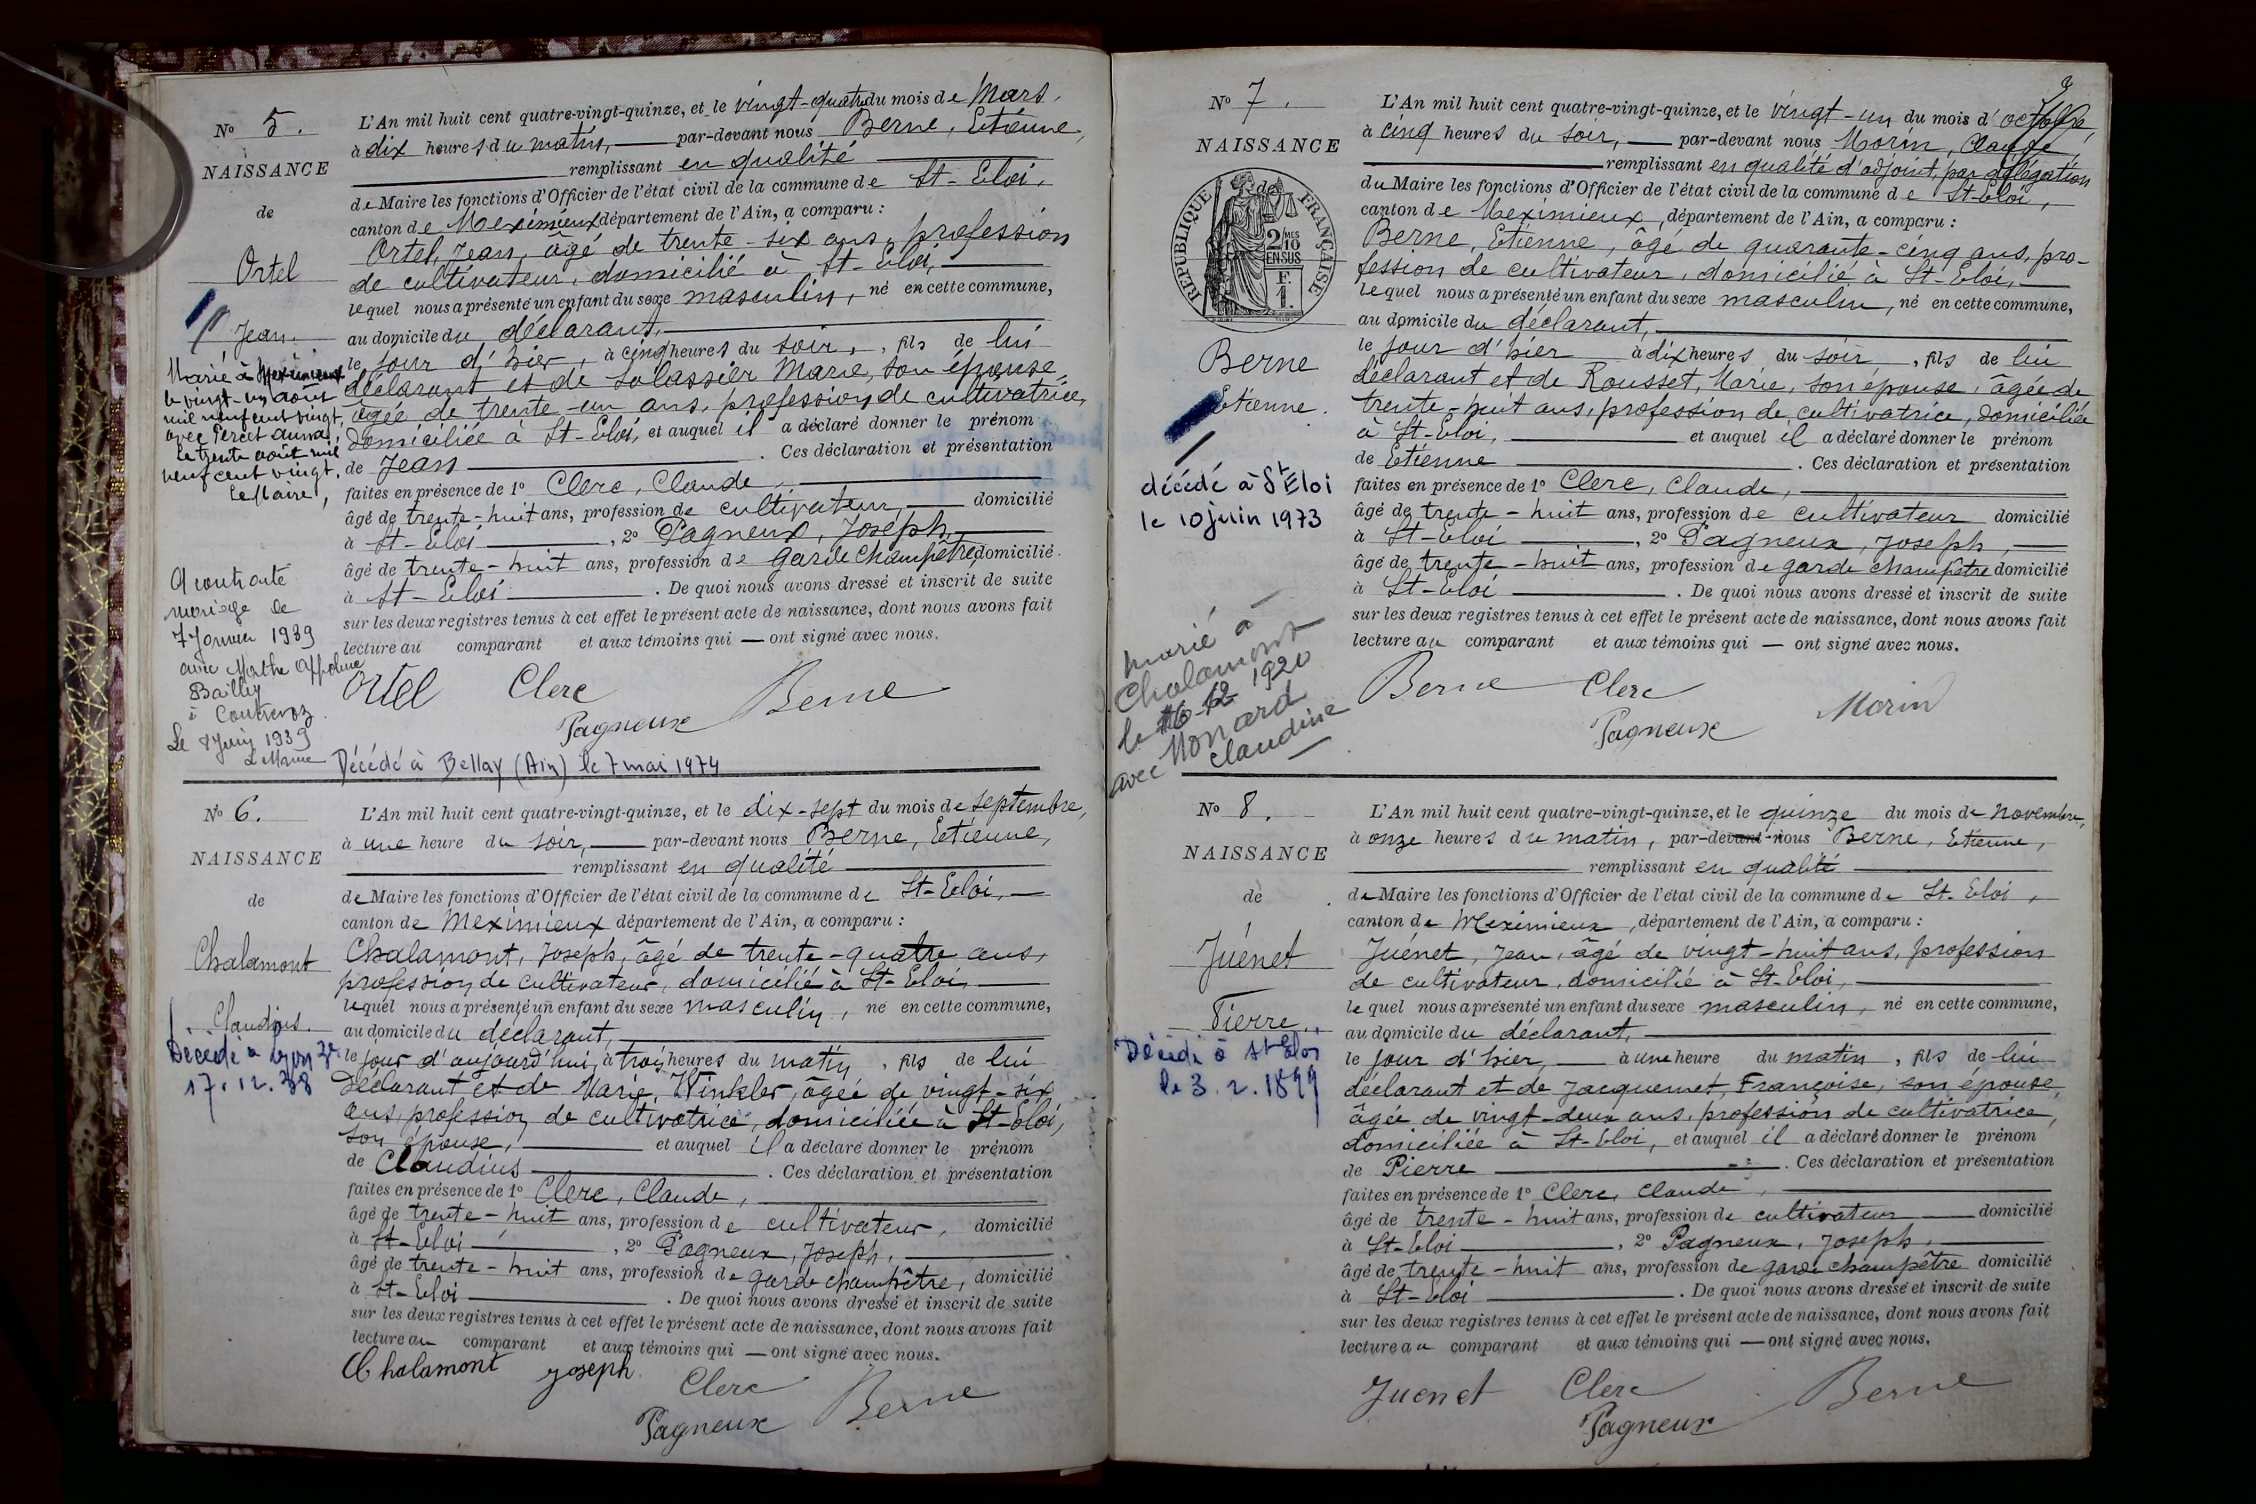 N° 5.
NAISSANCE
de
Ortel
Jean.
Marié à Meximieux
le vingt-un août
mil neuf cent vingt,
avec Percet Anna,
Le trente août mil
neuf cent vingt.
Le Maire,
A contracté
mariage le
7 Janvier 1939
avec Marthe Appoline
Bailly
à Contrevoz
Le 8 Juin 1939
Le Maire
L'An mil huit cent quatre-vingt-quinze, et le vingt-quatre du mois de Mars,
à dix heures du matin, par-devant nous Berne, Etienne,
remplissant en qualité
de Maire les fonctions d'Officier de l'état civil de la commune de St-Eloi,
canton de Meximieux département de l'Ain, a comparu :
Ortel, Jean, âgé de trente-six ans, profession
de cultivateur, domicilié à St-Eloi,
lequel nous a présenté un enfant du sexe masculin, né en cette commune,
au domicile du déclarant,
le jour d'hier, à cinq heures du soir, fils de lui
déclarant et de Solassier Marie, son épouse,
âgée de trente-un ans, profession de cultivatrice,
domiciliée à St-Eloi, et auquel il a déclaré donner le prénom
de Jean . Ces déclaration et présentation
faites en présence de 1° Clerc, Claude,
âgé de trente-huit ans, profession de cultivateur, domicilié
à St-Eloi , 2° Pagneux, Joseph,
âgé de trente-huit ans, profession de garde champêtre, domicilié
à St-Eloi . De quoi nous avons dressé et inscrit de suite
sur les deux registres tenus à cet effet le présent acte de naissance, dont nous avons fait
lecture au comparant et aux témoins qui — ont signé avec nous.
Ortel Clerc Berne
Pagneux
Décédé à Bellay (Ain) le 7 mai 1974
N° 6.
NAISSANCE
de
Chalamont
Claudius.
Décédé à Lyon 3e
17.12.38
L'An mil huit cent quatre-vingt-quinze, et le dix-sept du mois de septembre,
à une heure du soir, par-devant nous Berne, Etienne,
remplissant en qualité
de Maire les fonctions d'Officier de l'état civil de la commune de St-Eloi,
canton de Meximieux département de l'Ain, a comparu :
Chalamont, Joseph, âgé de trente-quatre ans,
profession de cultivateur, domicilié à St-Eloi,
lequel nous a présenté un enfant du sexe masculin, né en cette commune,
au domicile du déclarant,
le jour d'aujourd'hui, à trois heures du matin, fils de lui
Déclarant et de Marie Winkler, âgée de vingt-six
ans, profession de cultivatrice, domiciliée à St-Eloi,
son épouse, et auquel il a déclaré donner le prénom
de Claudius . Ces déclaration et présentation
faites en présence de 1° Clerc, Claude,
âgé de trente-huit ans, profession de cultivateur, domicilié
à St-Eloi , 2° Pagneux, Joseph,
âgé de trente-huit ans, profession de garde champêtre, domicilié
à St-Eloi . De quoi nous avons dressé et inscrit de suite
sur les deux registres tenus à cet effet le présent acte de naissance, dont nous avons fait
lecture au comparant et aux témoins qui — ont signé avec nous.
Chalamont Joseph Clerc Berne
Pagneux
N° 7.
NAISSANCE
de
RÉPUBLIQUE FRANÇAISE
2 MES
10
EN SUS
F.
1.
Berne
Etienne.
décédé à St Eloi
le 10 juin 1973
marié à
Chalamont
le 16-12 1920
avec Monard
Claudine
L'An mil huit cent quatre-vingt-quinze, et le vingt-un du mois d'octobre,
à cinq heures du soir, par-devant nous Morin, Claude,
remplissant en qualité d'adjoint, par délégation
du Maire les fonctions d'Officier de l'état civil de la commune de St-Eloi,
canton de Meximieux, département de l'Ain, a comparu :
Berne, Etienne, âgé de quarante-cinq ans, pro-
fession de cultivateur, domicilié à St-Eloi,
lequel nous a présenté un enfant du sexe masculin, né en cette commune,
au domicile du déclarant,
le jour d'hier à dix heures du soir, fils de lui
déclarant et de Rousset, Marie, son épouse, âgée de
trente-huit ans, profession de cultivatrice, domiciliée
à St-Eloi, et auquel il a déclaré donner le prénom
de Etienne . Ces déclaration et présentation
faites en présence de 1° Clerc, Claude,
âgé de trente-huit ans, profession de cultivateur domicilié
à St-Eloi , 2° Pagneux, Joseph,
âgé de trente-huit ans, profession de garde champêtre domicilié
à St-Eloi . De quoi nous avons dressé et inscrit de suite
sur les deux registres tenus à cet effet le présent acte de naissance, dont nous avons fait
lecture au comparant et aux témoins qui — ont signé avec nous.
Berne Clerc Morin
Pagneux
N° 8.
NAISSANCE
de
Juénet
Pierre.
Décédé à St Eloi
le 3.2.1899
L'An mil huit cent quatre-vingt-quinze, et le quinze du mois de novembre,
à onze heures du matin, par-devant nous Berne, Etienne,
remplissant en qualité
de Maire les fonctions d'Officier de l'état civil de la commune de St-Eloi,
canton de Meximieux, département de l'Ain, a comparu :
Juénet, Jean, âgé de vingt-huit ans, profession
de cultivateur, domicilié à St-Eloi,
lequel nous a présenté un enfant du sexe masculin, né en cette commune,
au domicile du déclarant,
le jour d'hier, à une heure du matin, fils de lui
déclarant et de Jacquemet, Françoise, son épouse,
âgée de vingt-deux ans, profession de cultivatrice,
domiciliée à St-Eloi, et auquel il a déclaré donner le prénom
de Pierre . Ces déclaration et présentation
faites en présence de 1° Clerc, Claude,
âgé de trente-huit ans, profession de cultivateur domicilié
à St-Eloi , 2° Pagneux, Joseph,
âgé de trente-huit ans, profession de garde champêtre domicilié
à St-Eloi . De quoi nous avons dressé et inscrit de suite
sur les deux registres tenus à cet effet le présent acte de naissance, dont nous avons fait
lecture au comparant et aux témoins qui — ont signé avec nous.
Juenet Clerc Berne
Pagneux